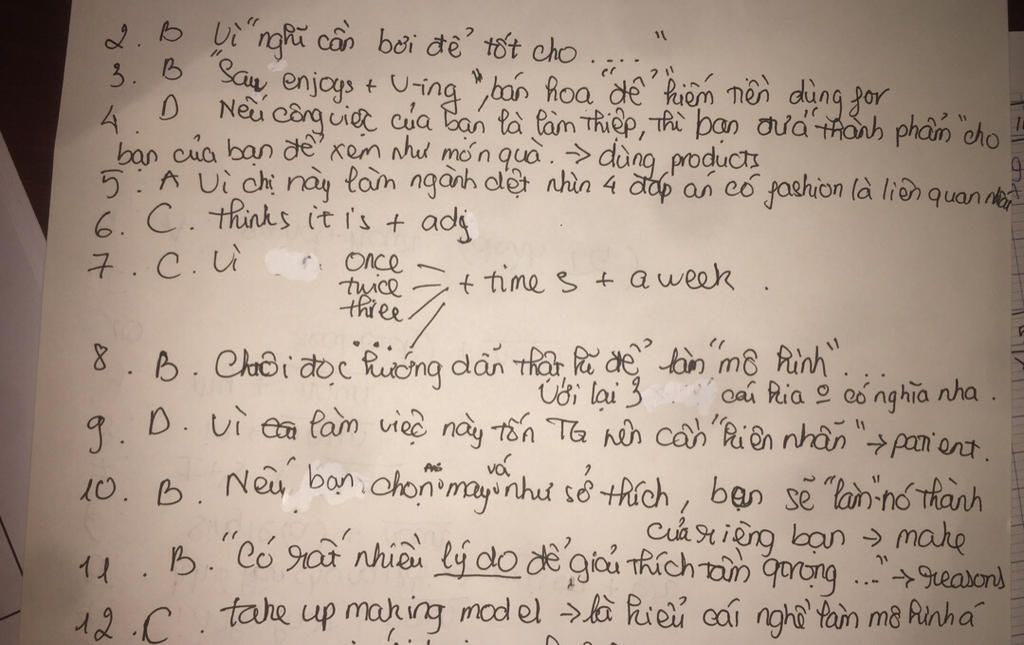 2. B Vì "nghĩ cần bơi để tốt cho ...."
3. B "Sau enjoys + V-ing", bán hoa "để" kiếm tiền dùng for
4. D Nếu công việc của bạn là làm thiệp, thì bạn đưa "thành phẩm" cho
bạn của bạn để xem như món quà. → dùng products
5. A Vì chị này làm ngành dệt nhìn 4 đáp án có fashion là liên quan
6. C. thinks it is + adj
7. C. Vì once
twice + time s + a week.
three
...
8. B. Chôi đọc hướng dẫn thật kĩ để làm "mô hình"...
Với lại 3 cái kia o có nghĩa nha.
9. D. Vì làm việc này tốn TG nên cần "kiên nhẫn" → patient.
10. B. Nếu bạn chọn may vá như sở thích, bạn sẽ "làm" nó thành
của riêng bạn → make
11. B. "Có rất nhiều lý do để giải thích tầm qrọng ..." → reasons
12. C. take up making model → là kiểu cái nghề làm mô hình á